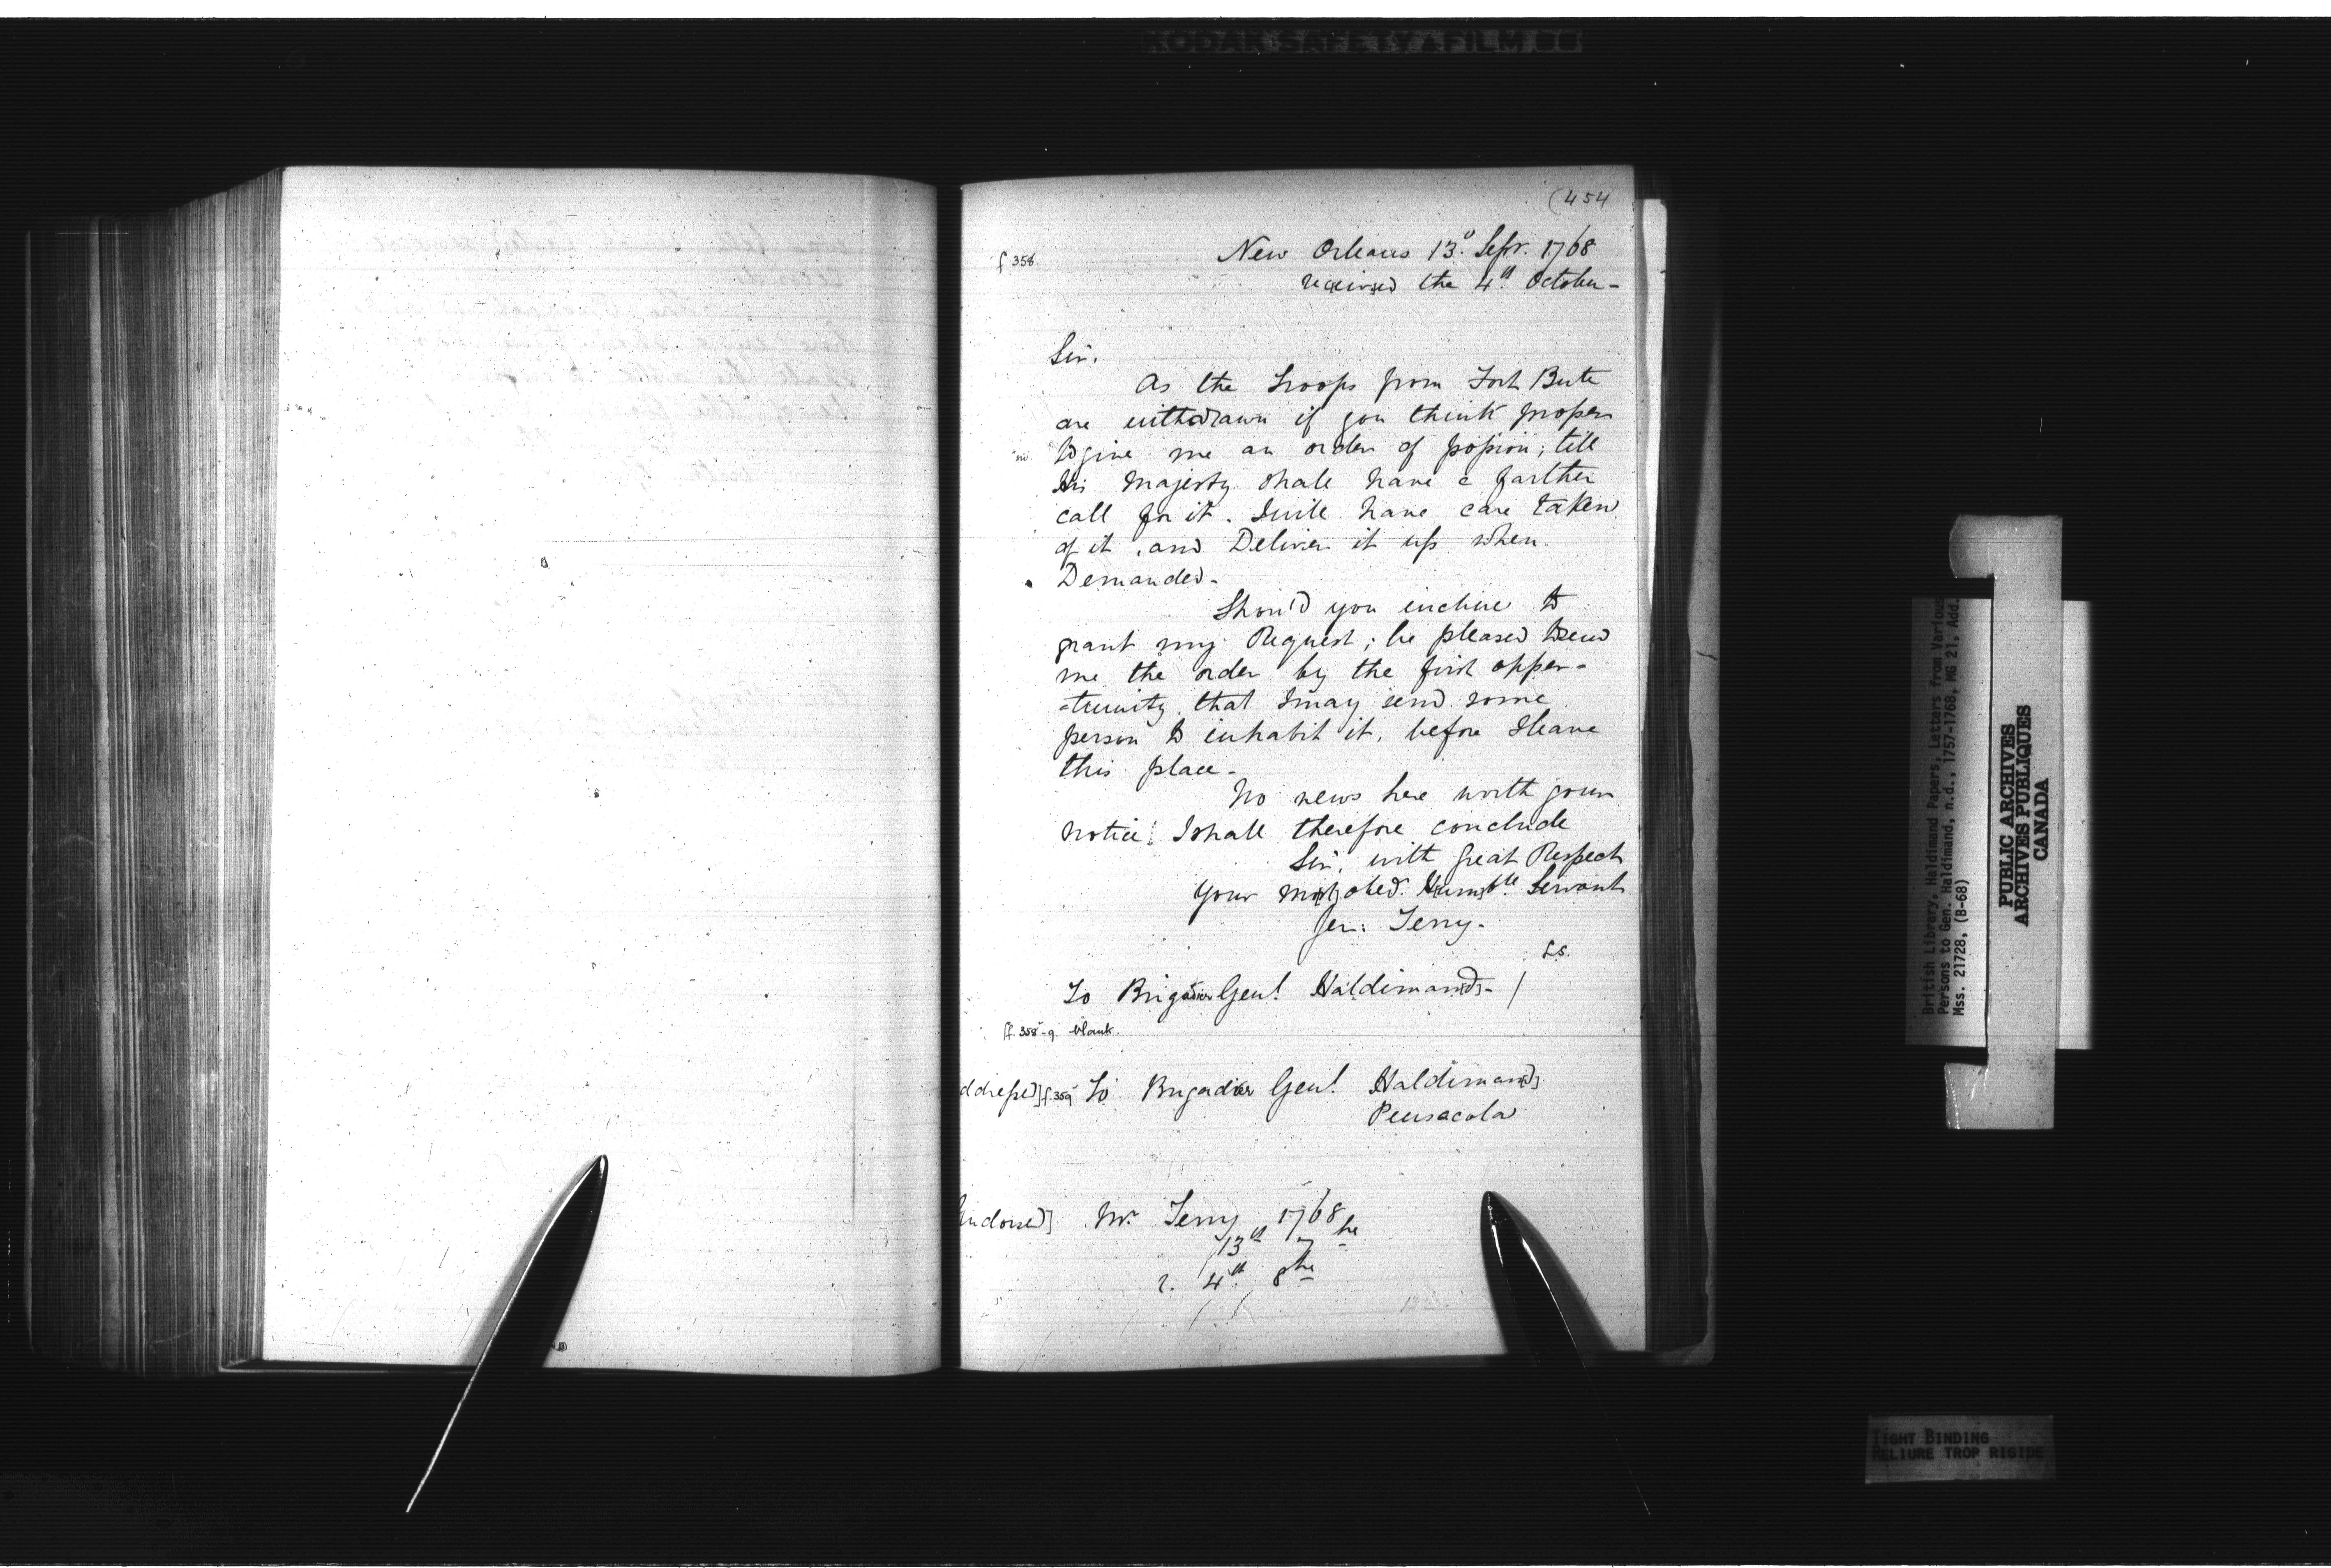 KODAK SAFETY FILM
(454
f 358.
New Orleans 13.th Sepr. 1768
rec[eive]d the 4.th October -
Sir.
As the Troops from Fort Bute
are withdrawn if you think proper
sic. to give me an order of possion; till
his Majesty shall have a farther
call for it. I will have care taken
of it, and Deliver it up when
Demanded -
Shou'd you incline to
grant my Request; be pleased to send
me the order by the first opper-
-tunity, that I may send some
person to inhabit it, before I leave
this place -
No news here worth your
notice I shall therefore conclude
Sir, with great Respect
Your mo[st] obed.t H[um]ble Servant
Jer: Terry -
L.S.
To Brigadier Gen.l Haldiman[d] - /
ff. 358v-9. blank.
ddressed] f. 359v To Brigadier Gen.l Haldiman[d]
Pensacola
Endorsed] Mr. Terry 1768
13th 7bre
r. 4th 8bre
British Library, Haldimand Papers, Letters from Various
Persons to Gen. Haldimand, n.d., 1757-1768, MG 21, Add.
Mss. 21728, (B-68)
PUBLIC ARCHIVES
ARCHIVES PUBLIQUES
CANADA
TIGHT BINDING
RELIURE TROP RIGIDE